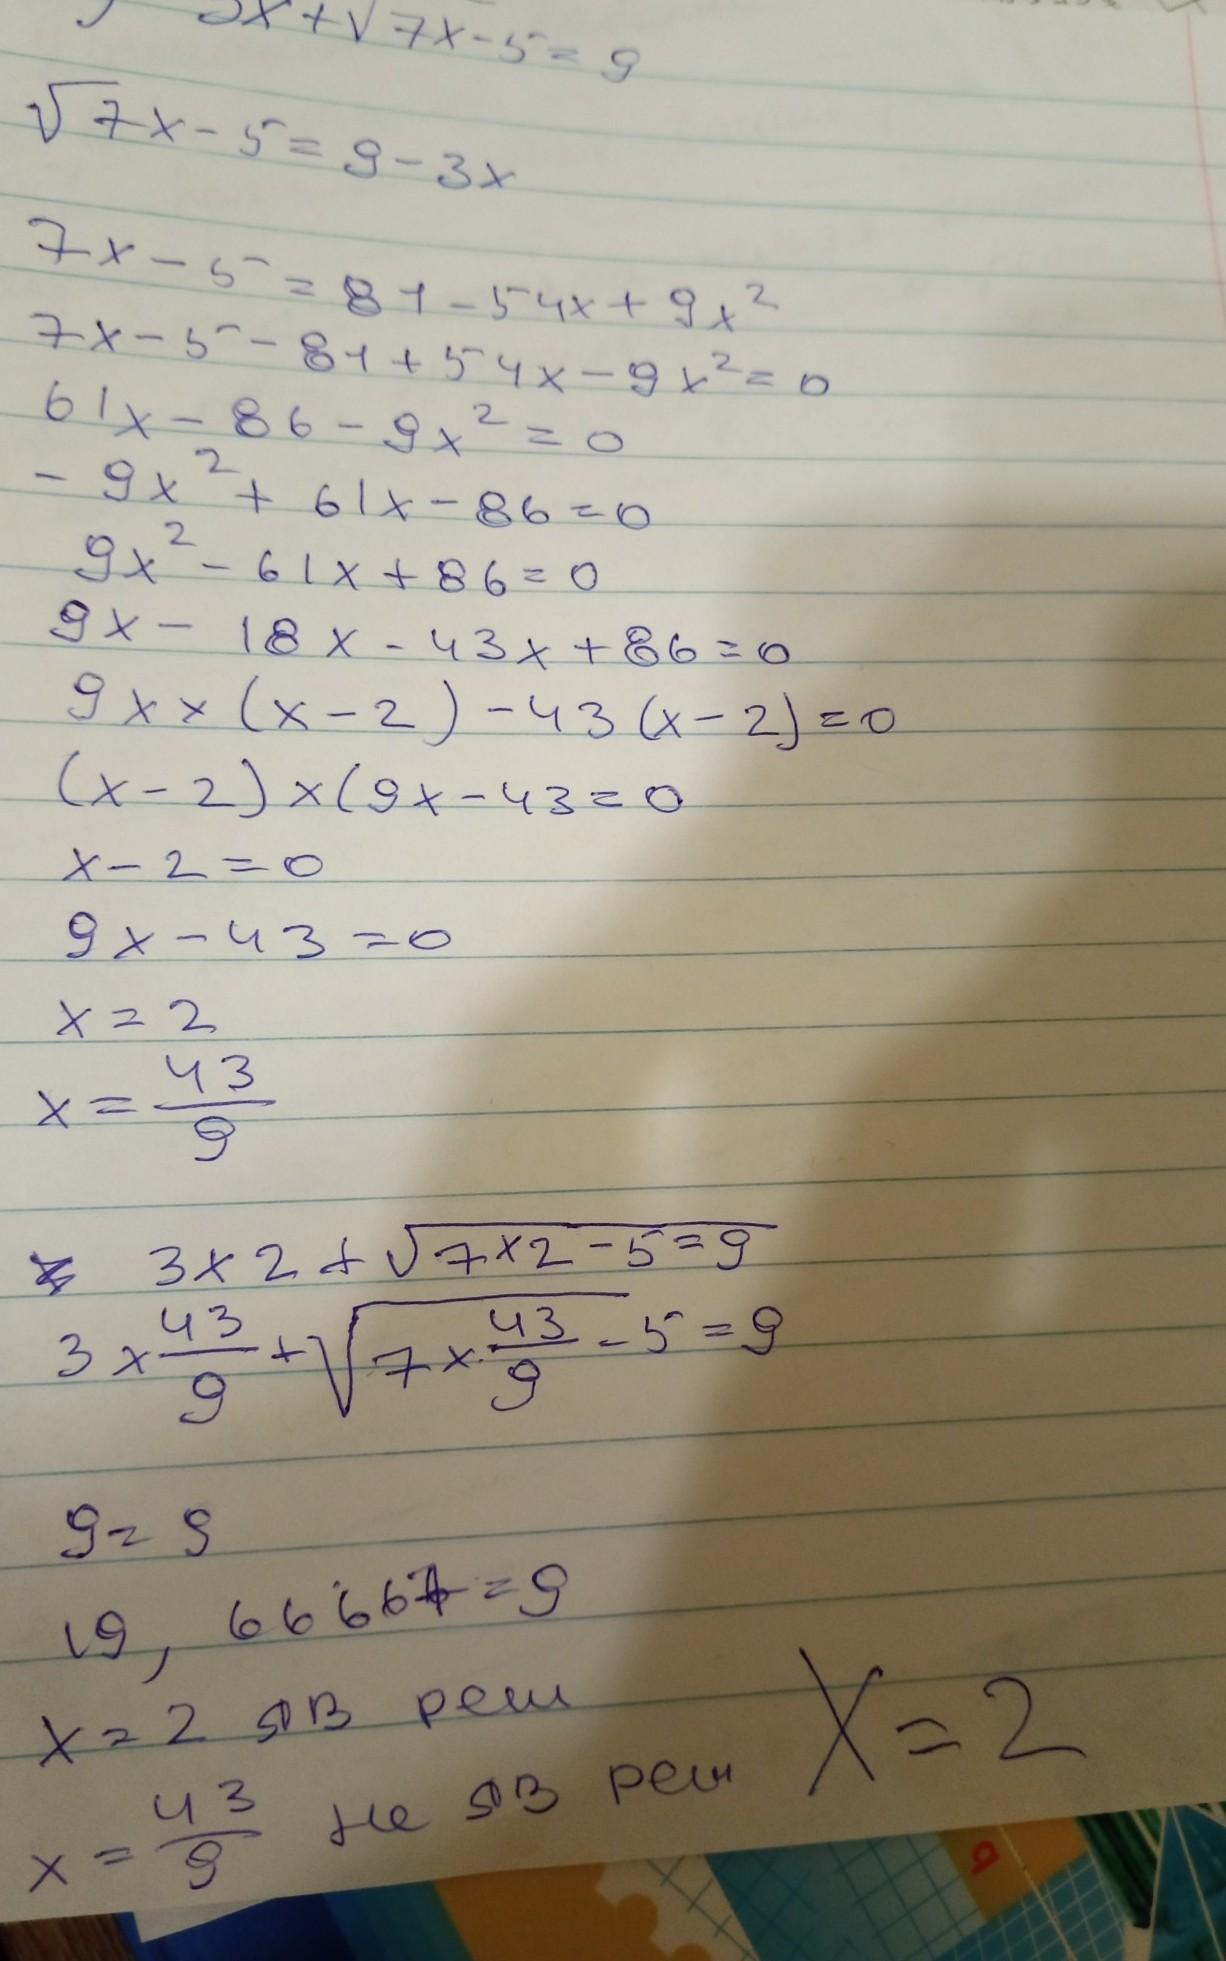 3x+√7x-5=9
√7x-5=9-3x
7x-5=81-54x+9x²
7x-5-81+54x-9x²=0
61x-86-9x²=0
-9x²+61x-86=0
9x²-61x+86=0
9x-18x-43x+86=0
9x×(x-2)-43(x-2)=0
(x-2)×(9x-43=0
x-2=0
9x-43=0
x=2
x=43/9
3×2+√7×2-5=9
3×43/9+√7×43/9-5=9
9=9
19,66667=9
x=2 яв реш
x=43/9 не яв реш
X=2